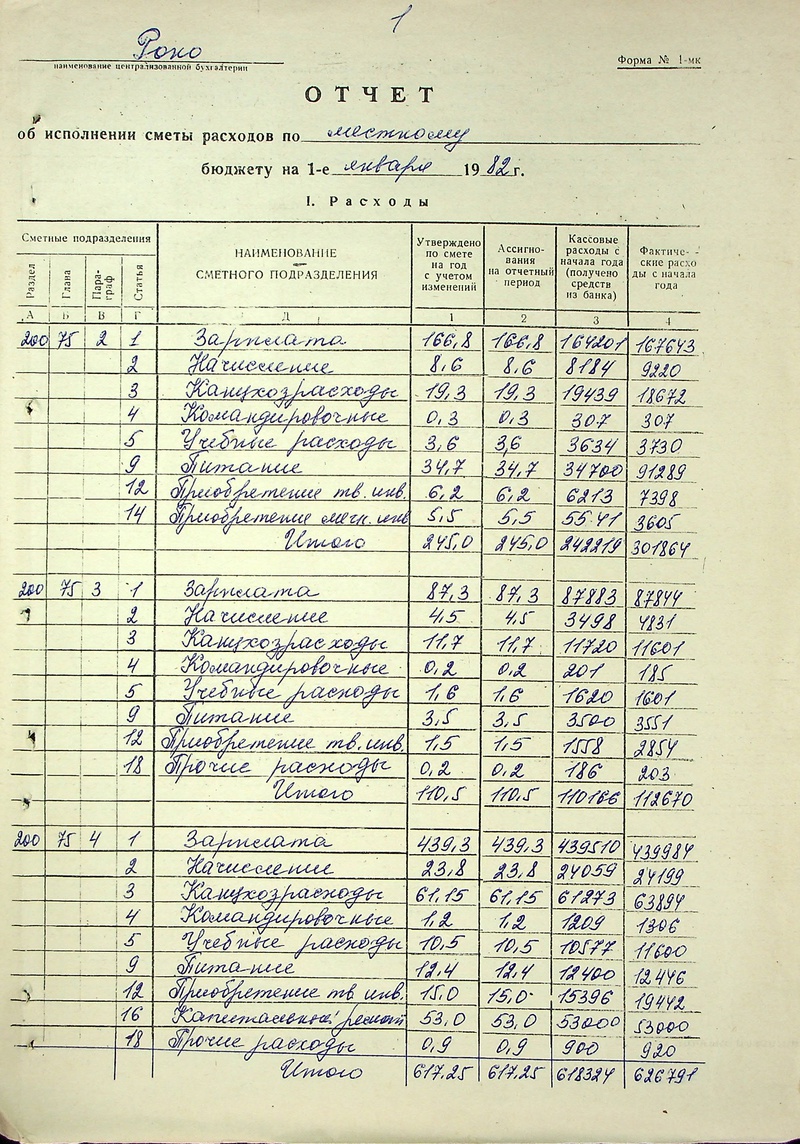 1
Роно
наименование централизованной бухгалтерии
Форма № 1-мк
ОТЧЕТ
об исполнении сметы расходов по местному
бюджету на 1-е января 1982 г.
I. Расходы
Сметные подразделения
НАИМЕНОВАНИЕ СМЕТНОГО ПОДРАЗДЕЛЕНИЯ
Утверждено по смете на год с учетом изменений
Ассигнования на отчетный период
Кассовые расходы с начала года (получено средств из банка)
Фактические расходы с начала года
Раздел Глава Параграф Статья
А Б В Г Д 1 2 3 4
200 75 2 1 Зарплата 166,8 166,8 164201 167643
2 Начисление 8,6 8,6 8184 9220
3 Канцхозрасходы 19,3 19,3 19439 18672
4 Командировочные 0,3 0,3 307 307
5 Учебные расходы 3,6 3,6 3634 3730
9 Питание 34,7 34,7 34700 91289
12 Приобретение тв. инв. 6,2 6,2 6213 7398
14 Приобретение мягк. инв 5,5 5,5 5541 3605
Итого 245,0 245,0 242219 301864
200 75 3 1 Зарплата 87,3 87,3 87883 87844
2 Начисление 4,5 4,5 3498 4831
3 Канцхозрасходы 11,7 11,7 11720 11601
4 Командировочные 0,2 0,2 201 185
5 Учебные расходы 1,6 1,6 1620 1601
9 Питание 3,5 3,5 3500 3551
12 Приобретение тв. инв. 1,5 1,5 1558 2854
18 Прочие расходы 0,2 0,2 186 203
Итого 110,5 110,5 110166 112670
200 75 4 1 Зарплата 439,3 439,3 439510 439984
2 Начисление 23,8 23,8 24059 24199
3 Канцхозрасходы 61,15 61,15 61273 63894
4 Командировочные 1,2 1,2 1209 1306
5 Учебные расходы 10,5 10,5 10577 11600
9 Питание 12,4 12,4 12400 12446
12 Приобретение тв инв. 15,0 15,0 15396 19442
16 Капитальный ремонт 53,0 53,0 53000 53000
18 Прочие расходы 0,9 0,9 900 920
Итого 617,25 617,25 618324 626791